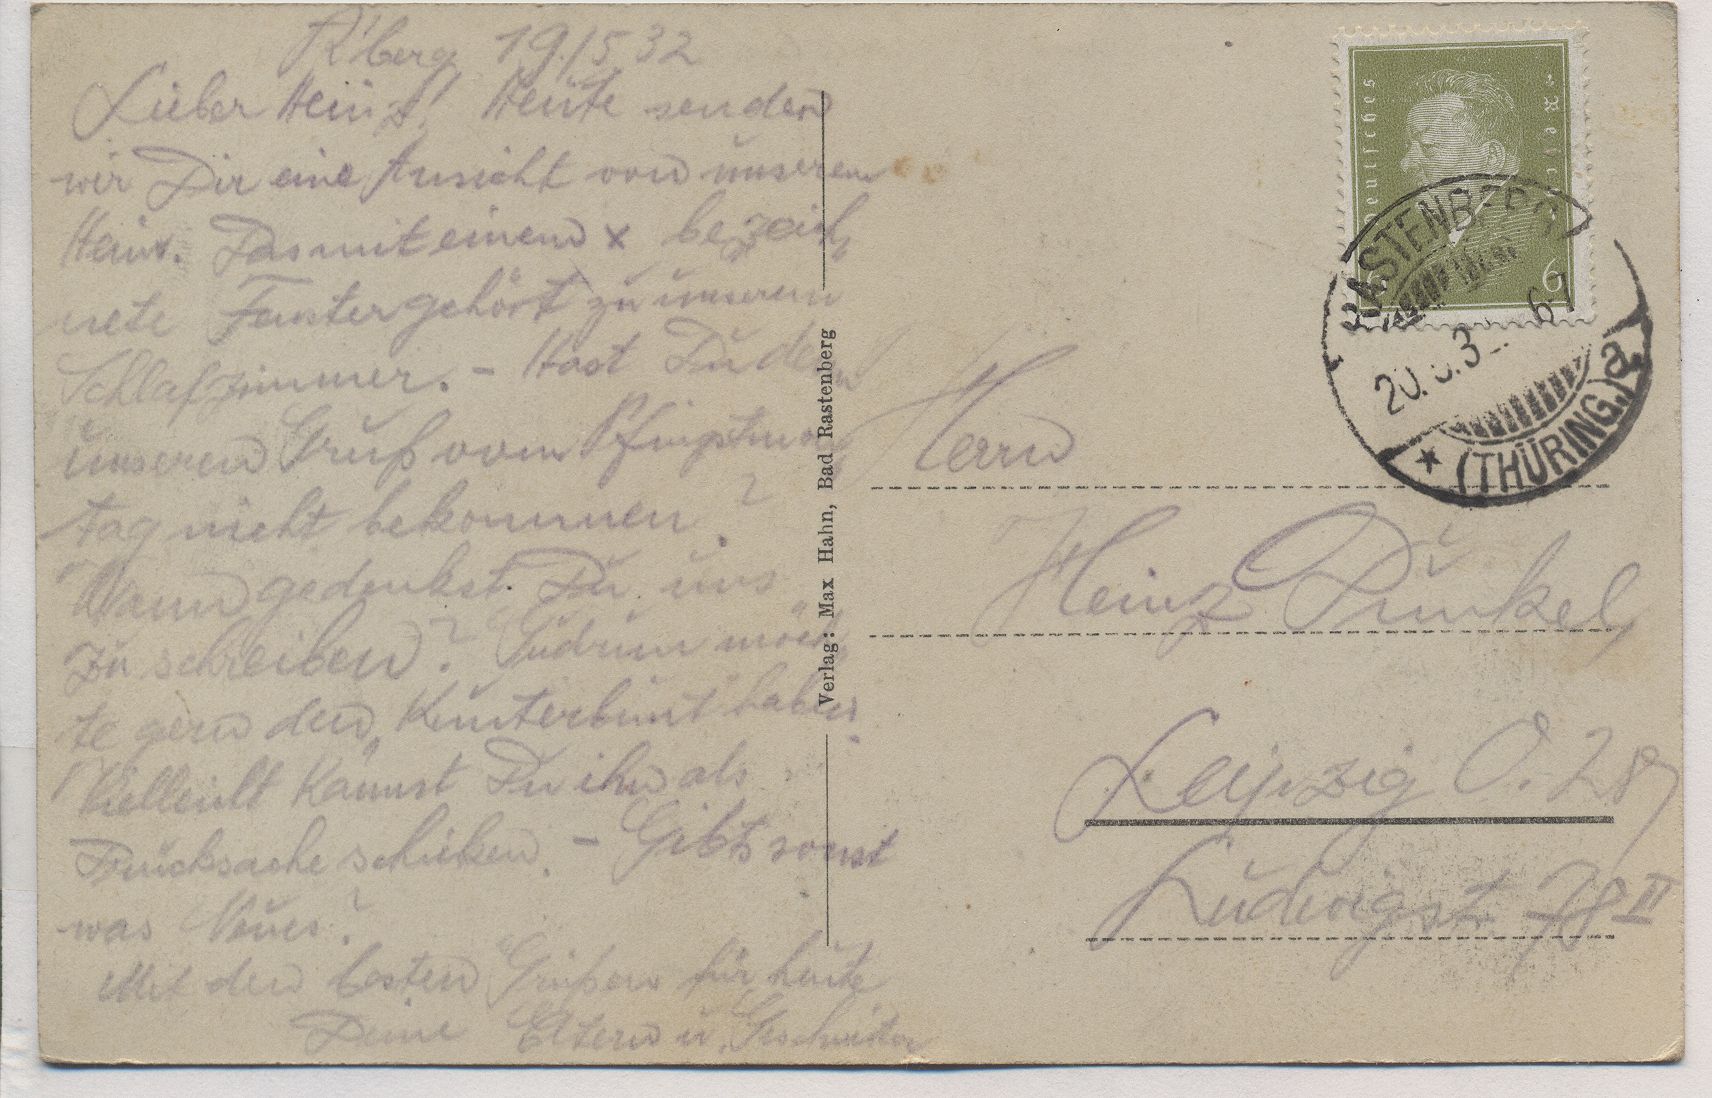 R'berg 19./5 32
Lieber Heinz! Heute senden
wir Dir eine Ansicht von unserem
Heim. Das mit einem x bezeich
nete Fenster gehört zu unserem
Schlafzimmer. – Hast Du den
unseren Gruß vom Pfingstmon
tag nicht bekommen?
Wann gedenkst Du uns
zu schreiben? Gudrun möch
te gern den "Kunterbunt" haben.
Vielleicht kannst Du ihn als
Drucksache schicken. – Gibts sonst
was Neues?
Mit den besten Grüßen für heute
Deine Eltern u. Geschwister
Verlag: Max Hahn, Bad Rastenberg
Deutsches Reich
6 6
RASTENBERG
20. 3 6-7
* (THÜRING.) a
Herrn
Heinz Dunkel,
Leipzig O. 28
Ludwigst. 78 II